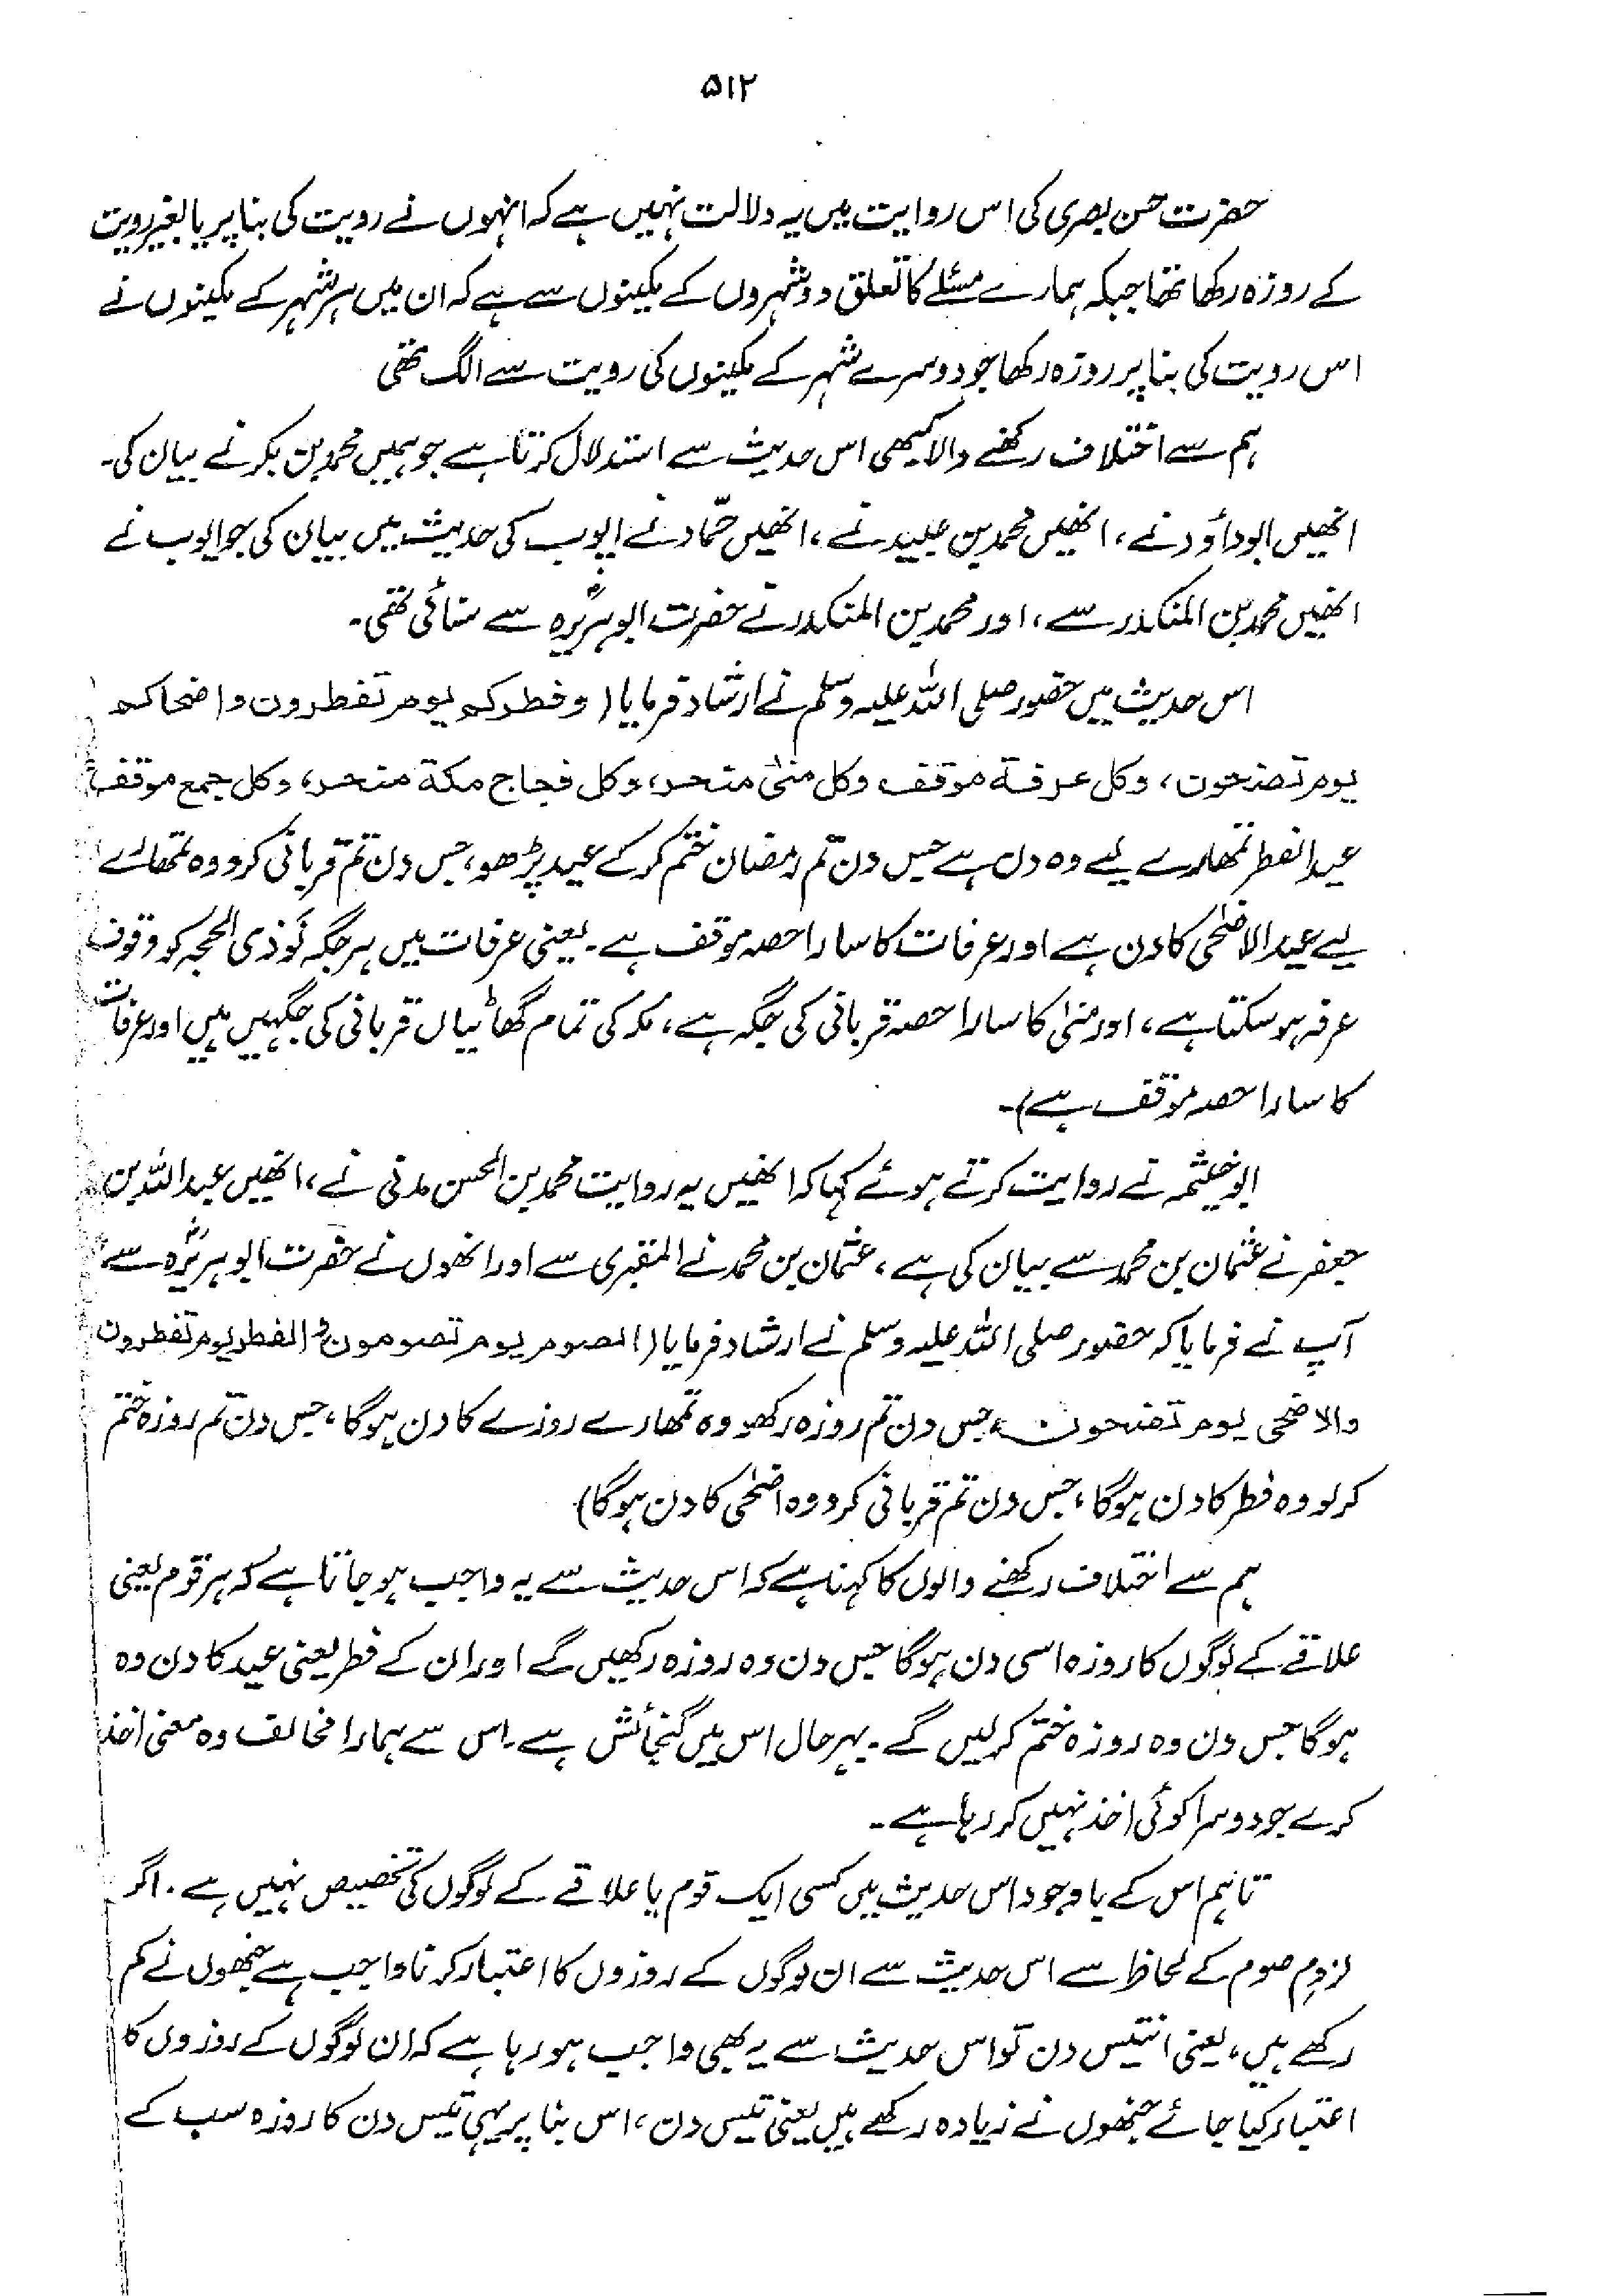 ۵۱۲
حضرت حسن بصری کی اس روایت میں یہ دلالت نہیں ہے کہ انہوں نے رویت کی بنا پر یا بغیر رویت
کے روزہ رکھا تھا جبکہ ہمارے مسئلے کا تعلق دو شہروں کے مکینوں سے ہے کہ ان میں ہر شہر کے مکینوں نے
اس رویت کی بنا پر روزہ رکھا جو دوسرے شہر کے مکینوں کی رویت سے الگ تھی
ہم سے اختلاف رکھنے والا کبھی اس حدیث سے استدلال کرتا ہے جو ہمیں محمد بن بکر نے بیان کی۔
انھیں ابوداؤد نے، انھیں محمد بن عبید نے، انھیں حمّاد نے ایوب کی حدیث میں بیان کی جو ایوب نے
انھیں محمد بن المنکدر سے، اور محمد بن المنکدر نے حضرت ابوہریرہؓ سے سنائی تھی۔
اس حدیث میں حضور صلی اللہ علیہ وسلم نے ارشاد فرمایا (وفطرکم یوم تفطرون واضحاکم
یوم تضحون، وکل عرفة موقف وکل منیٰ منحر، وکل فجاج مکة منحر، وکل جمع موقف
عید الفطر تمھارے لیے وہ دن ہے جس دن تم رمضان ختم کر کے عید پڑھو، جس دن تم قربانی کرو وہ تمھارے
لیے عید الاضحٰی کا دن ہے اور عرفات کا سارا حصہ موقف ہے۔ یعنی عرفات میں ہر جگہ نو ذی الحجہ کو وقوف
عرفہ ہو سکتا ہے، اور منیٰ کا سارا حصہ قربانی کی جگہ ہے، مکہ کی تمام گھاٹیاں قربانی کی جگہیں ہیں اور عرفات
کا سارا حصہ موقف ہے)۔
ابو خیثمہ نے روایت کرتے ہوئے کہا کہ انھیں یہ روایت محمد بن الحسن مدنی نے، انھیں عبداللہ بن
جعفر نے عثمان بن محمد سے بیان کی ہے، عثمان بن محمد نے المقبری سے اور انھوں نے حضرت ابوہریرہؓ سے
آپ نے فرمایا کہ حضور صلی اللہ علیہ وسلم نے ارشاد فرمایا (الصوم یوم تصومون والفطر یوم تفطرون
والاضحی یوم تضحون، جس دن تم روزہ رکھو وہ تمھارے روزے کا دن ہوگا، جس دن تم روزہ ختم
کر لو وہ فطر کا دن ہوگا، جس دن تم قربانی کرو وہ اضحٰی کا دن ہوگا)
ہم سے اختلاف رکھنے والوں کا کہنا ہے کہ اس حدیث سے یہ واجب ہو جاتا ہے کہ ہر قوم یعنی
علاقے کے لوگوں کا روزہ اسی دن ہوگا جس دن وہ روزہ رکھیں گے اور ان کے فطر یعنی عید کا دن وہ
ہوگا جس دن وہ روزہ ختم کر لیں گے۔ بہرحال اس میں گنجائش ہے۔ اس سے ہمارا مخالف وہ معنی اخذ
کرے جو دوسرا کوئی اخذ نہیں کر رہا ہے۔
تاہم اس کے باوجود اس حدیث میں کسی ایک قوم یا علاقے کے لوگوں کی تخصیص نہیں ہے۔ اگر
لزوم صوم کے لحاظ سے اس حدیث سے ان لوگوں کے روزوں کا اعتبار کرنا واجب ہے جنھوں نے کم
رکھے ہیں، یعنی انتیس دن تو اس حدیث سے یہ بھی واجب ہو رہا ہے کہ ان لوگوں کے روزوں کا
اعتبار کیا جائے جنھوں نے زیادہ رکھے ہیں یعنی تیس دن، اس بنا پر یہی تیس دن کا روزہ سب کے